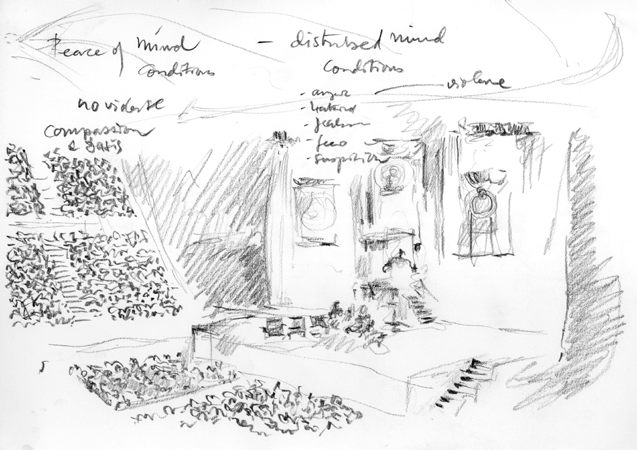 Peace of mind
conditions
no violence
compassion
- disturbed mind
conditions
- anger
- hatred
- fear
- suspicion
violence